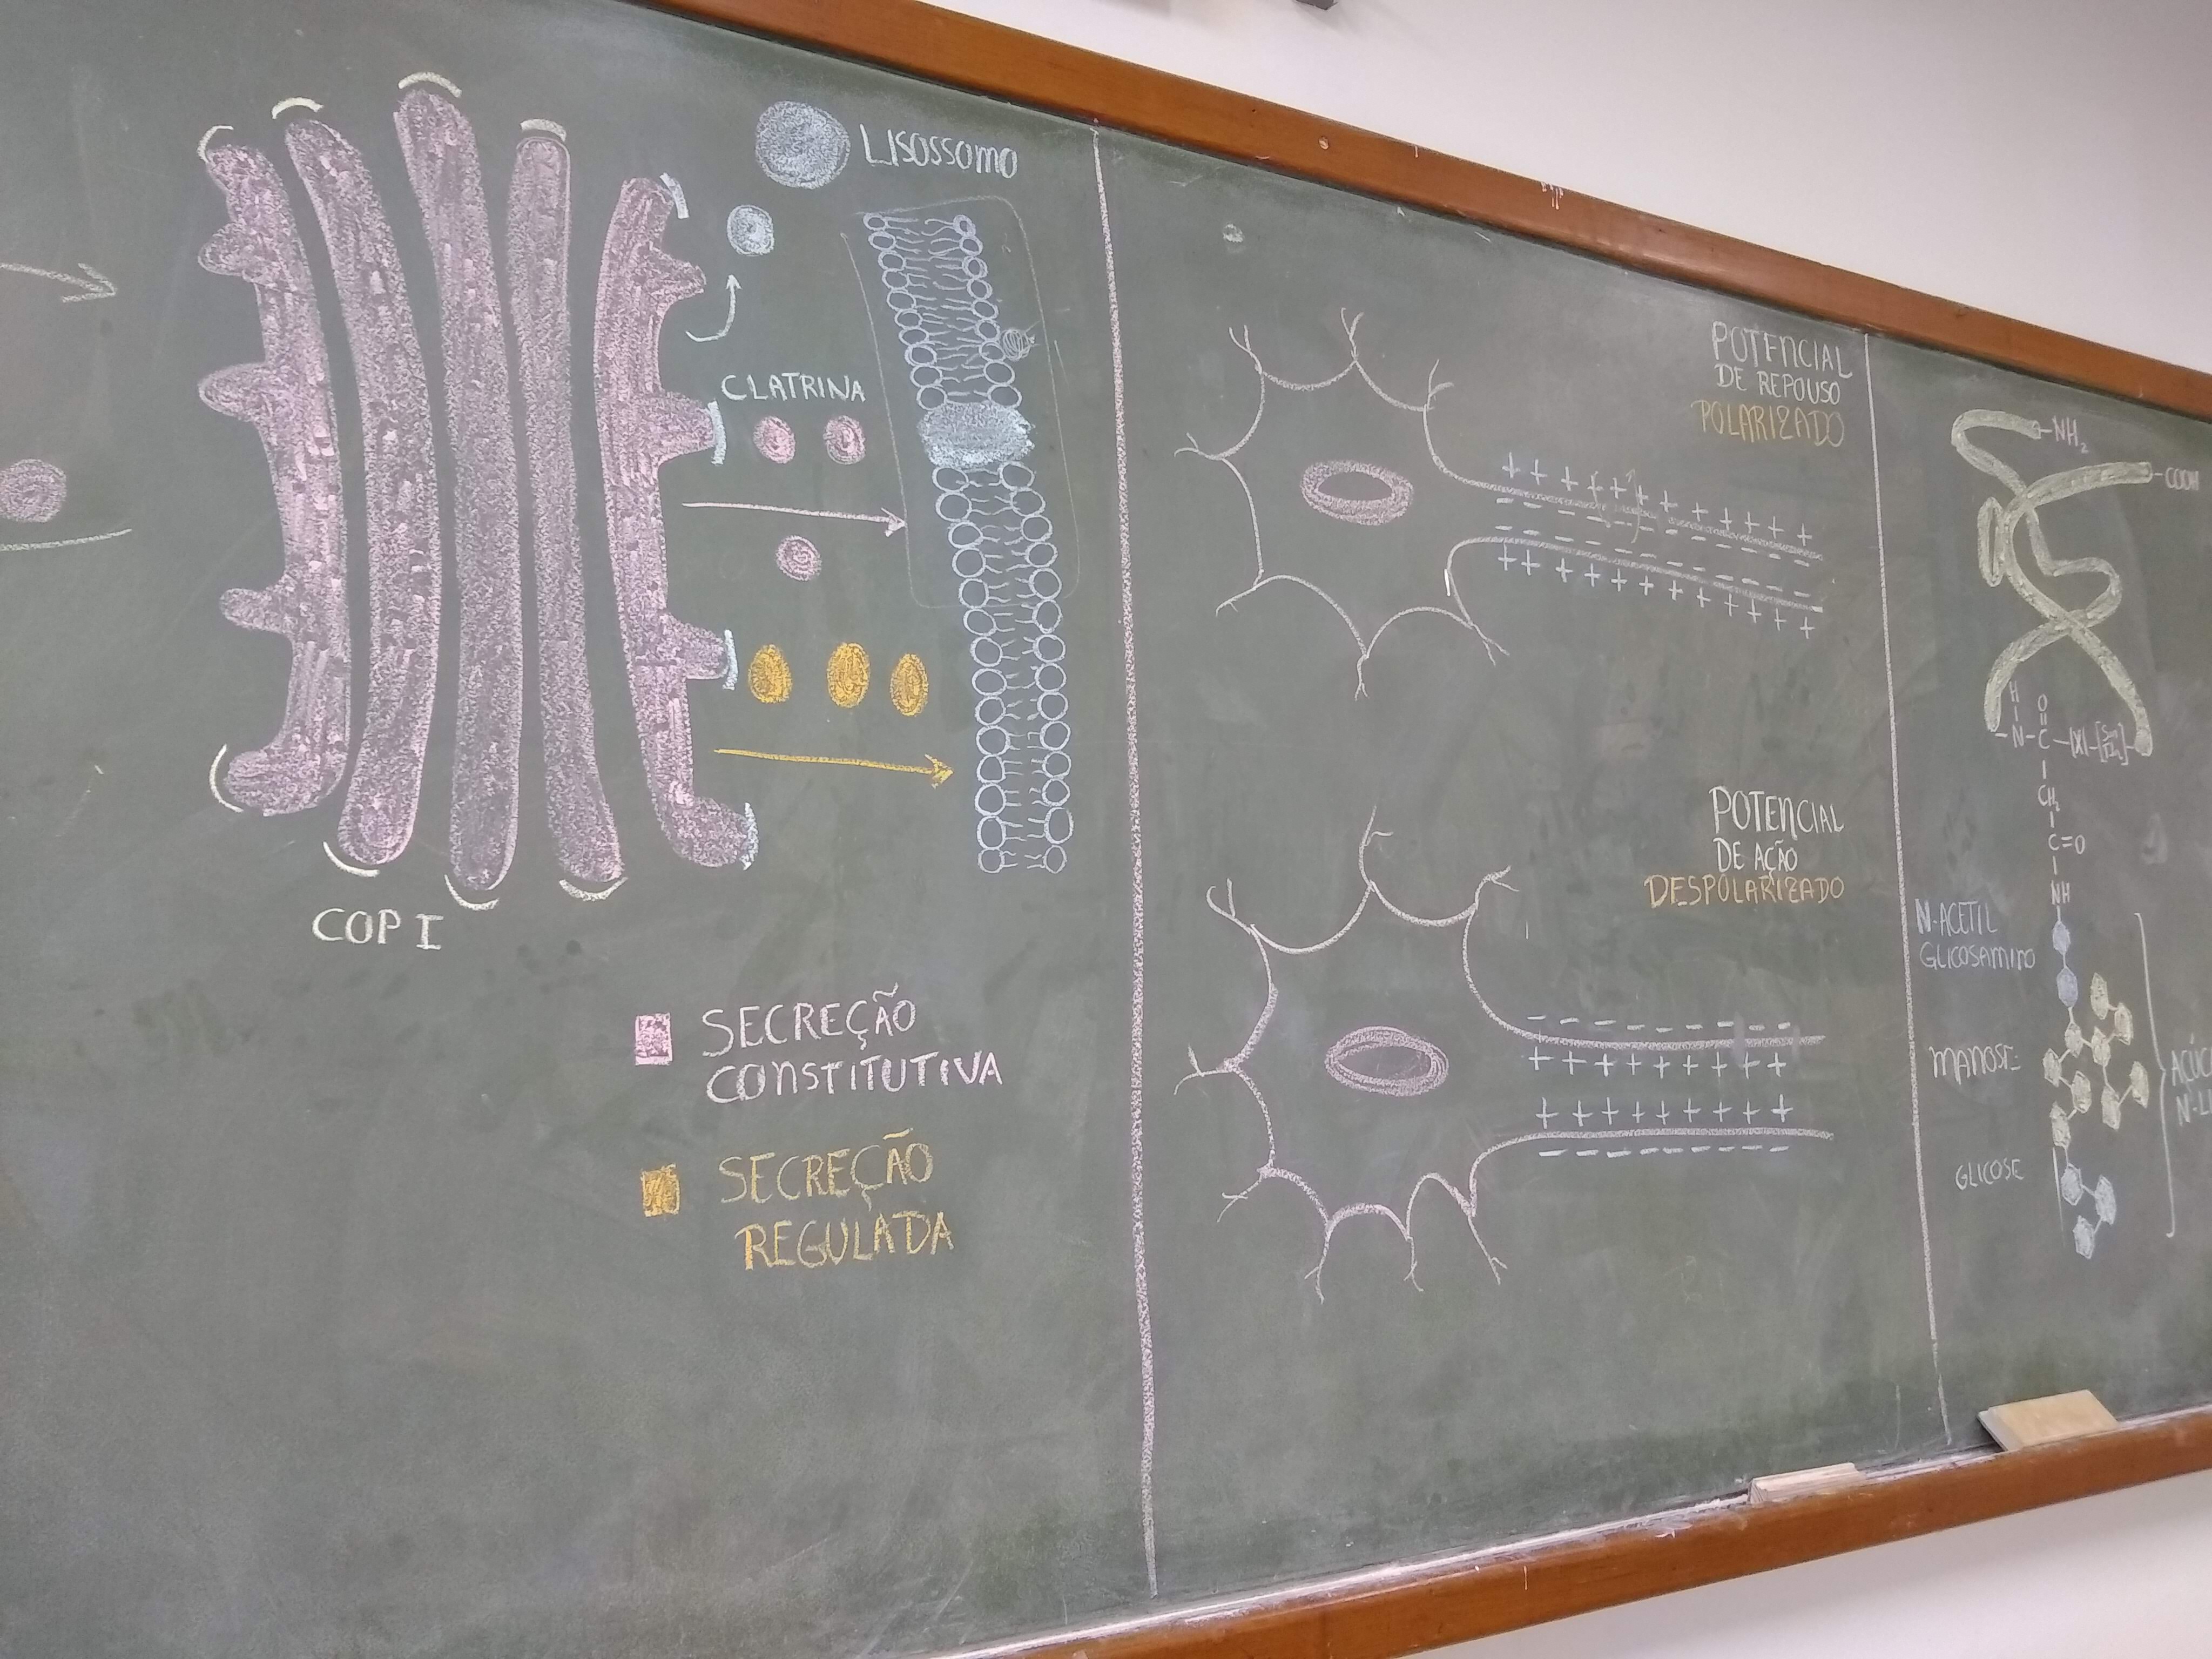 LISOSSOMO
CLATRINA
COP I
SECREÇÃO
CONSTITUTIVA
SECREÇÃO
REGULADA
POTENCIAL
DE REPOUSO
POLARIZADO
+ + + + + + + + + + + +
- - - - - - - - - - - -
- - - - - - - - -
+ + + + + + + + + + + +
POTENCIAL
DE AÇÃO
DESPOLARIZADO
- - - - - - - - - -
+ + + + + + + + +
+ + + + + + + + +
- - - - - - - - - -
-NH2
-COOH
H O
-N-C-[X]-
CH2
C=O
NH
N-ACETIL
GLICOSAMINO
MANOSE
GLICOSE